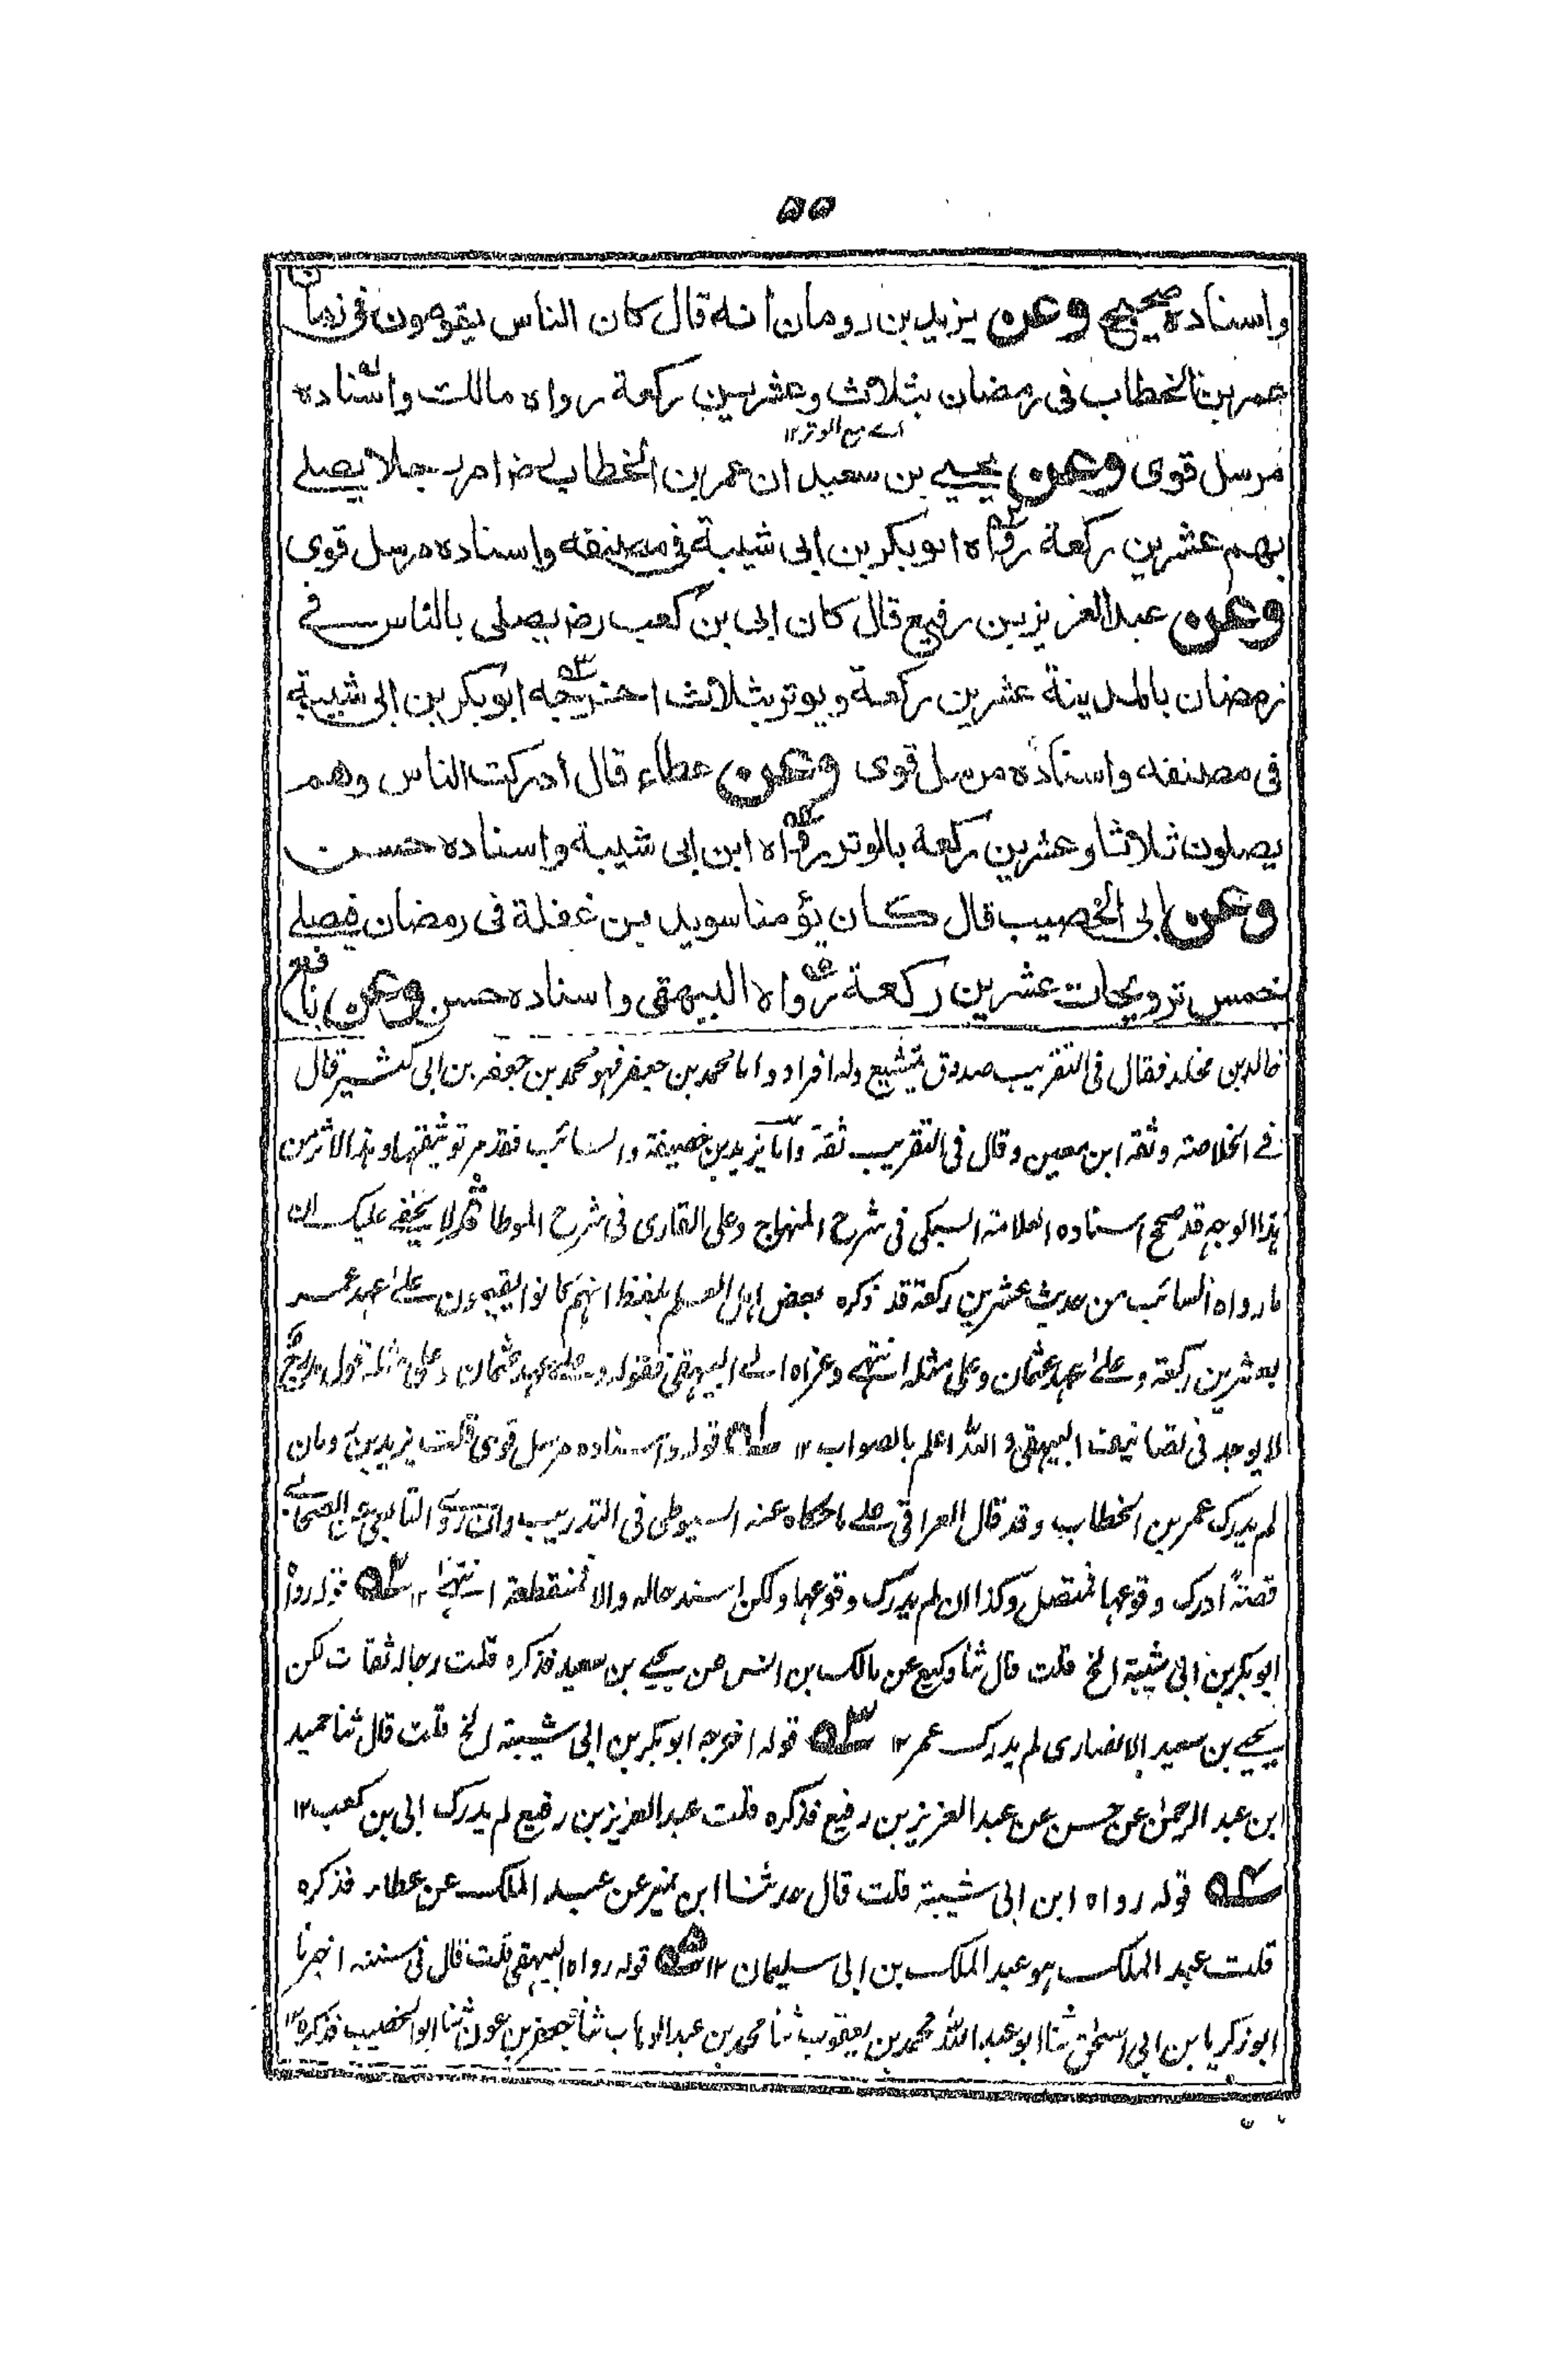 ۵۵
واسناده صحيح وعن يزيد بن رومان انه قال كان الناس يقومون فى زمان
عمر بن الخطاب فى رمضان بثلاث وعشرين ركعة رواه مالك واسناده
اے مع الوتر ۱۲
مرسل قوى وعن يحيى بن سعيد ان عمر بن الخطاب رض امر رجلا يصلے
بهم عشرين ركعة رواه ابو بكر بن ابى شيبة فى مصنفه واسناده مرسل قوى
وعن عبد العزيز بن رفيع قال كان ابى بن كعب رض يصلى بالناس فے
رمضان بالمدينة عشرين ركعة ويوتر بثلاث اخرجه ابو بكر بن ابى شيبة
فى مصنفه واسناده مرسل قوى وعن عطاء قال ادركت الناس وهم
يصلون ثلاثا وعشرين ركعة بالوتر رواه ابن ابى شيبة واسناده حسن
وعن ابى الخصيب قال كان يؤمنا سويد بن غفلة فى رمضان فيصلے
خمس ترويحات عشرين ركعة رواه البيهقى واسناده حسن وعن نافع
خالد بن مخلد فقال فى التقريب صدوق يتشيع وله افراد واما محمد بن جعفر فهو محمد بن جعفر بن ابى كثير قال
فے الخلاصة وثقه ابن معين وقال فى التقريب ثقة واما يزيد بن خصيفة والسائب فقد مر توثيقهما وهذا الاثر من
هذا الوجه قد صحح اسناده العلامة السبكى فى شرح المنهاج وعلى القارى فى شرح الموطا ثم لا يخفے عليك ان
ما رواه السائب من حديث عشرين ركعة قد ذكره بعض اهل العلم بلفظ انهم كانوا يقيمون علے عهد عمر
بعشرين ركعة وعلے عهد عثمان وعلى مثله انتهے وعزاه الے البيهقى فقوله وعلے عهد عثمان وعلى مثله قول مدرج
لا يوجد فى تصانيف البيهقى والله اعلم بالصواب ۱۲ ۵۱ قوله واسناده مرسل قوى قلت يزيد بن رومان
لم يدرك عمر بن الخطاب وقد قال العراقى علے ما حكاه عنه السيوطى فى التدريب وان روى التابعى عن الصحابے
قصة ادرك وقوعها فمتصل وكذا ان لم يدرك وقوعها ولكن اسندها له والا فمنقطعة انتهے ۱۲ ۵۲ قوله رواه
ابو بكر بن ابى شيبة الخ قلت قال ثنا وكيع عن مالك بن انس عن يحيے بن سعيد فذكره قلت رجاله ثقات لكن
يحيے بن سعيد الانصارى لم يدرك عمر ۱۲ ۵۳ قوله اخرجه ابو بكر بن ابى شيبة الخ قلت قال ثنا حميد
ابن عبد الرحمٰن عن حسن عن عبد العزيز بن رفيع فذكره قلت عبد العزيز بن رفيع لم يدرك ابى بن كعب ۱۲
۵۴ قوله رواه ابن ابى شيبة قلت قال حدثنا ابن نمير عن عبد الملك عن عطاء فذكره
قلت عبد الملك هو عبد الملك بن ابى سليمان ۱۲ ۵۵ قوله رواه البيهقى قلت قال فى سننه اخبرنا
ابو زكريا بن ابى اسحٰق ثنا ابو عبد الله محمد بن يعقوب ثنا محمد بن عبد الوهاب ثنا جعفر بن عون ثنا ابو الخصيب فذكره ۱۲